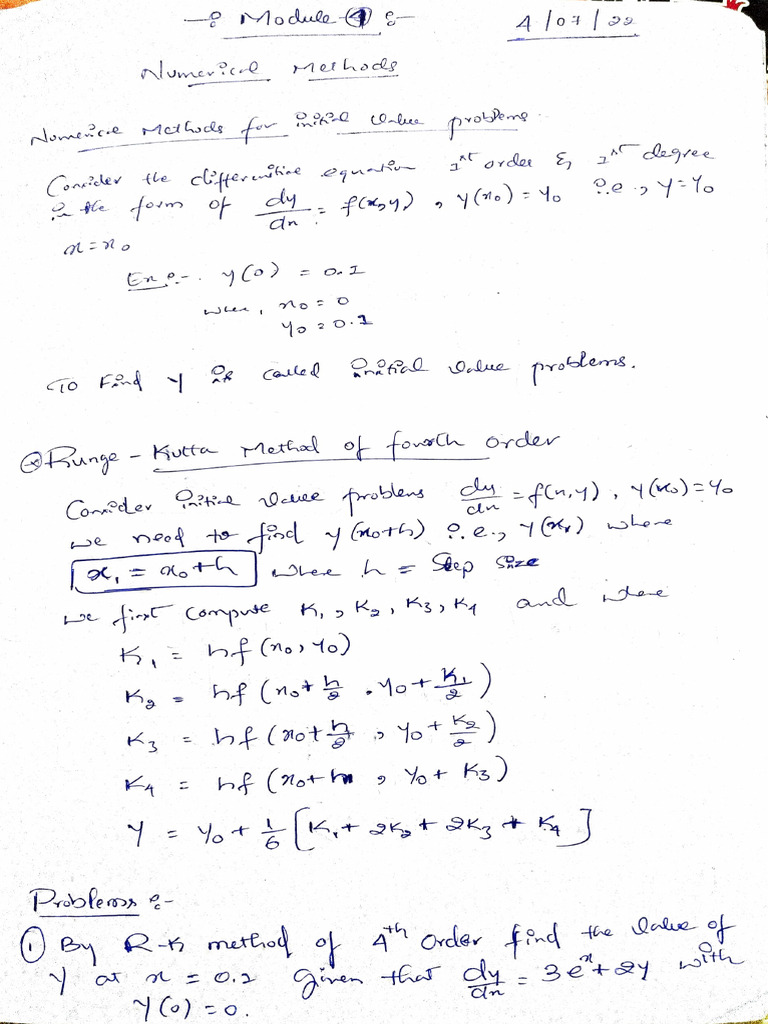 -: Module ④ :-
4/07/22
Numerical Methods
Numerical Methods for initial value problems.
Consider the differential equation 1st order & 1st degree
in the form of dy/dx = f(x,y), y(x0) = y0 i.e., y=y0
x=x0
Ex :- y(0) = 0.1
where, x0 = 0
y0 = 0.1
To Find y is called initial value problems.
⊛ Runge-Kutta Method of fourth order
Consider initial value problems dy/dx = f(x,y), y(x0)=y0
we need to find y(x0+h) i.e., y(x1) where
x1 = x0+h where h = Step size
we first compute K1, K2, K3, K4 and where
K1 = hf(x0, y0)
K2 = hf(x0+h/2, y0+K1/2)
K3 = hf(x0+h/2, y0+K2/2)
K4 = hf(x0+h, y0+K3)
y = y0+1/6[K1+2K2+2K3+K4]
Problems :-
① By R-K method of 4th Order find the value of
y at x = 0.2 given that dy/dx = 3e^x+2y with
y(0)=0.